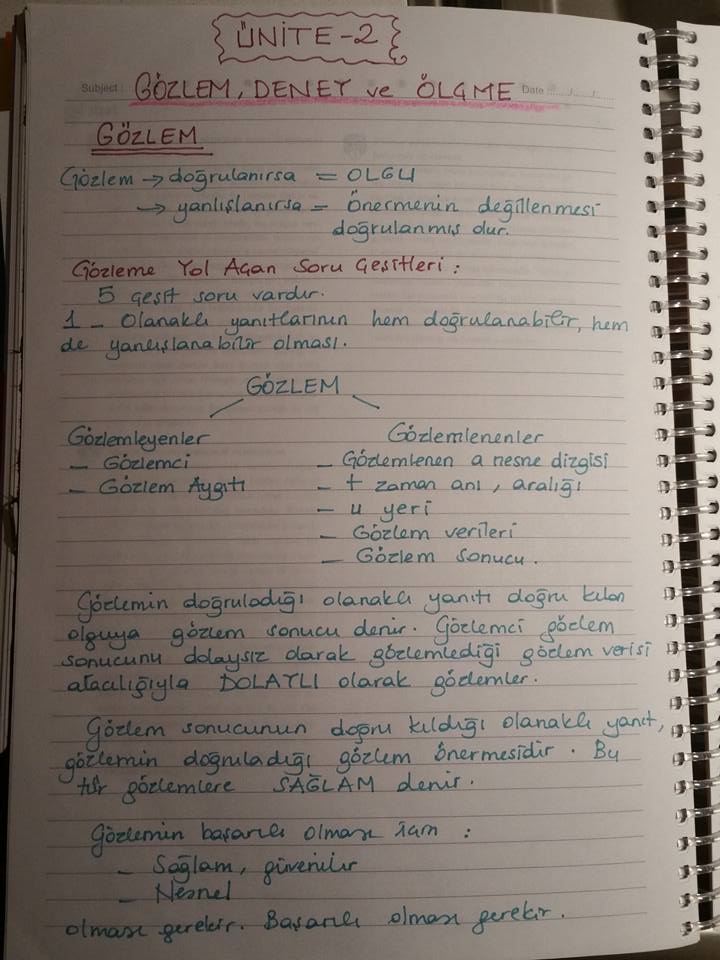 ÜNİTE-2
Subject: GÖZLEM, DENEY ve ÖLÇME Date: ..../..../....
GÖZLEM
Gözlem → doğrulanırsa = OLGU
→ yanlışlanırsa = önermenin değillenmesi
doğrulanmış dur.
Gözleme Yol Açan Soru Çeşitleri :
5 çeşit soru vardır.
1 - Olanaklı yanıtlarının hem doğrulanabilir, hem
de yanlışlanabilir olması.
GÖZLEM
Gözlemleyenler Gözlemlenenler
- Gözlemci - Gözlemlenen a nesne dizgisi
- Gözlem Aygıtı - t zaman anı, aralığı
- u yeri
- Gözlem verileri
- Gözlem sonucu.
Gözlemin doğruladığı olanaklı yanıtı doğru kılan
olguya gözlem sonucu denir. Gözlemci gözlem
sonucunu dolaysız olarak gözlemlediği gözlem verisi
aracılığıyla DOLAYLI olarak gözlemler.
Gözlem sonucunun doğru kıldığı olanaklı yanıt,
gözlemin doğruladığı gözlem önermesidir. Bu
tür gözlemlere SAĞLAM denir.
Gözlemin başarılı olması için :
- Sağlam, güvenilir
- Nesnel
olması gerekir. Başarılı olması gerekir.